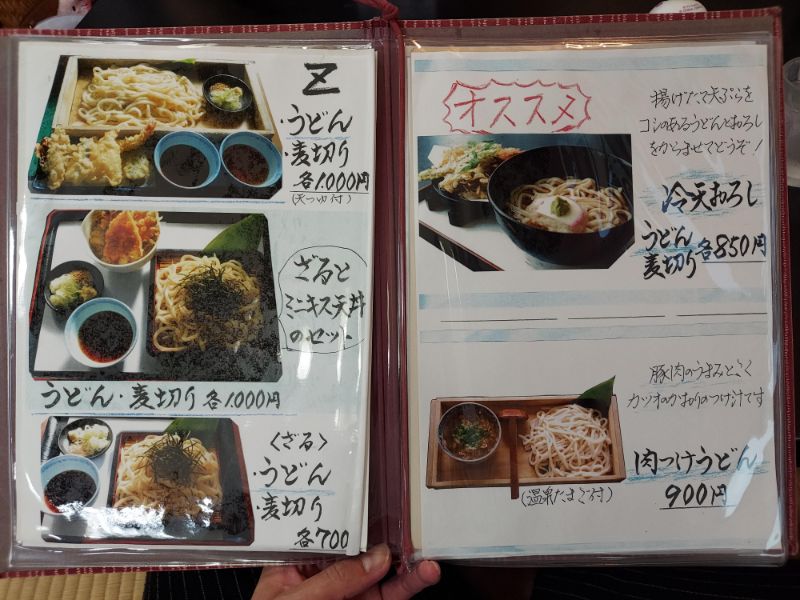 Z
・うどん
・麦切り
各1.000円
(天つゆ付)
ざると
ミニキス天丼
のセット
うどん・麦切り 各1.000円
〈ざる〉
・うどん
・麦切り
各700
オススメ
揚げたて天ぷらを
コシのあるうどんとおろし
をからませてどうぞ!
冷天おろし
うどん
麦切り 各850円
豚肉のうまみとこく
カツオのかおりのつけ汁です
肉つけうどん
900円
(温泉たまご付)